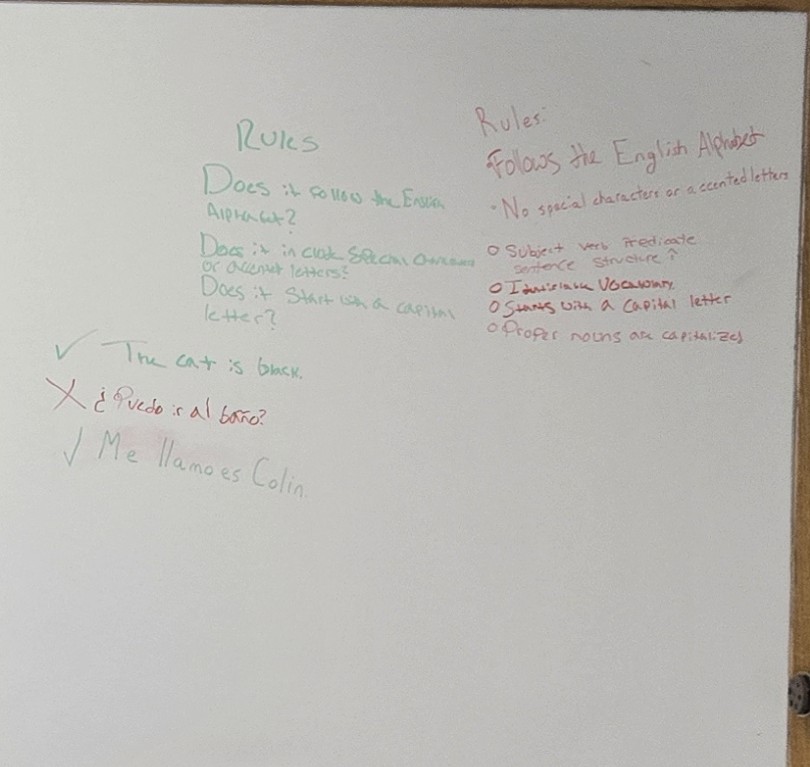 Rules
Does it follow the English
Alphabet?
Does it include special characters
or accent letters?
Does it start with a capital
letter?
✓ The cat is black.
X ¿Puedo ir al baño?
✓ Me llamo es Colin.
Rules:
Follows the English Alphabet
• No special characters or accented letters
○ Subject verb Predicate
sentence structure?
○ Vocabulary
○ Starts with a capital letter
○ Proper nouns are capitalized